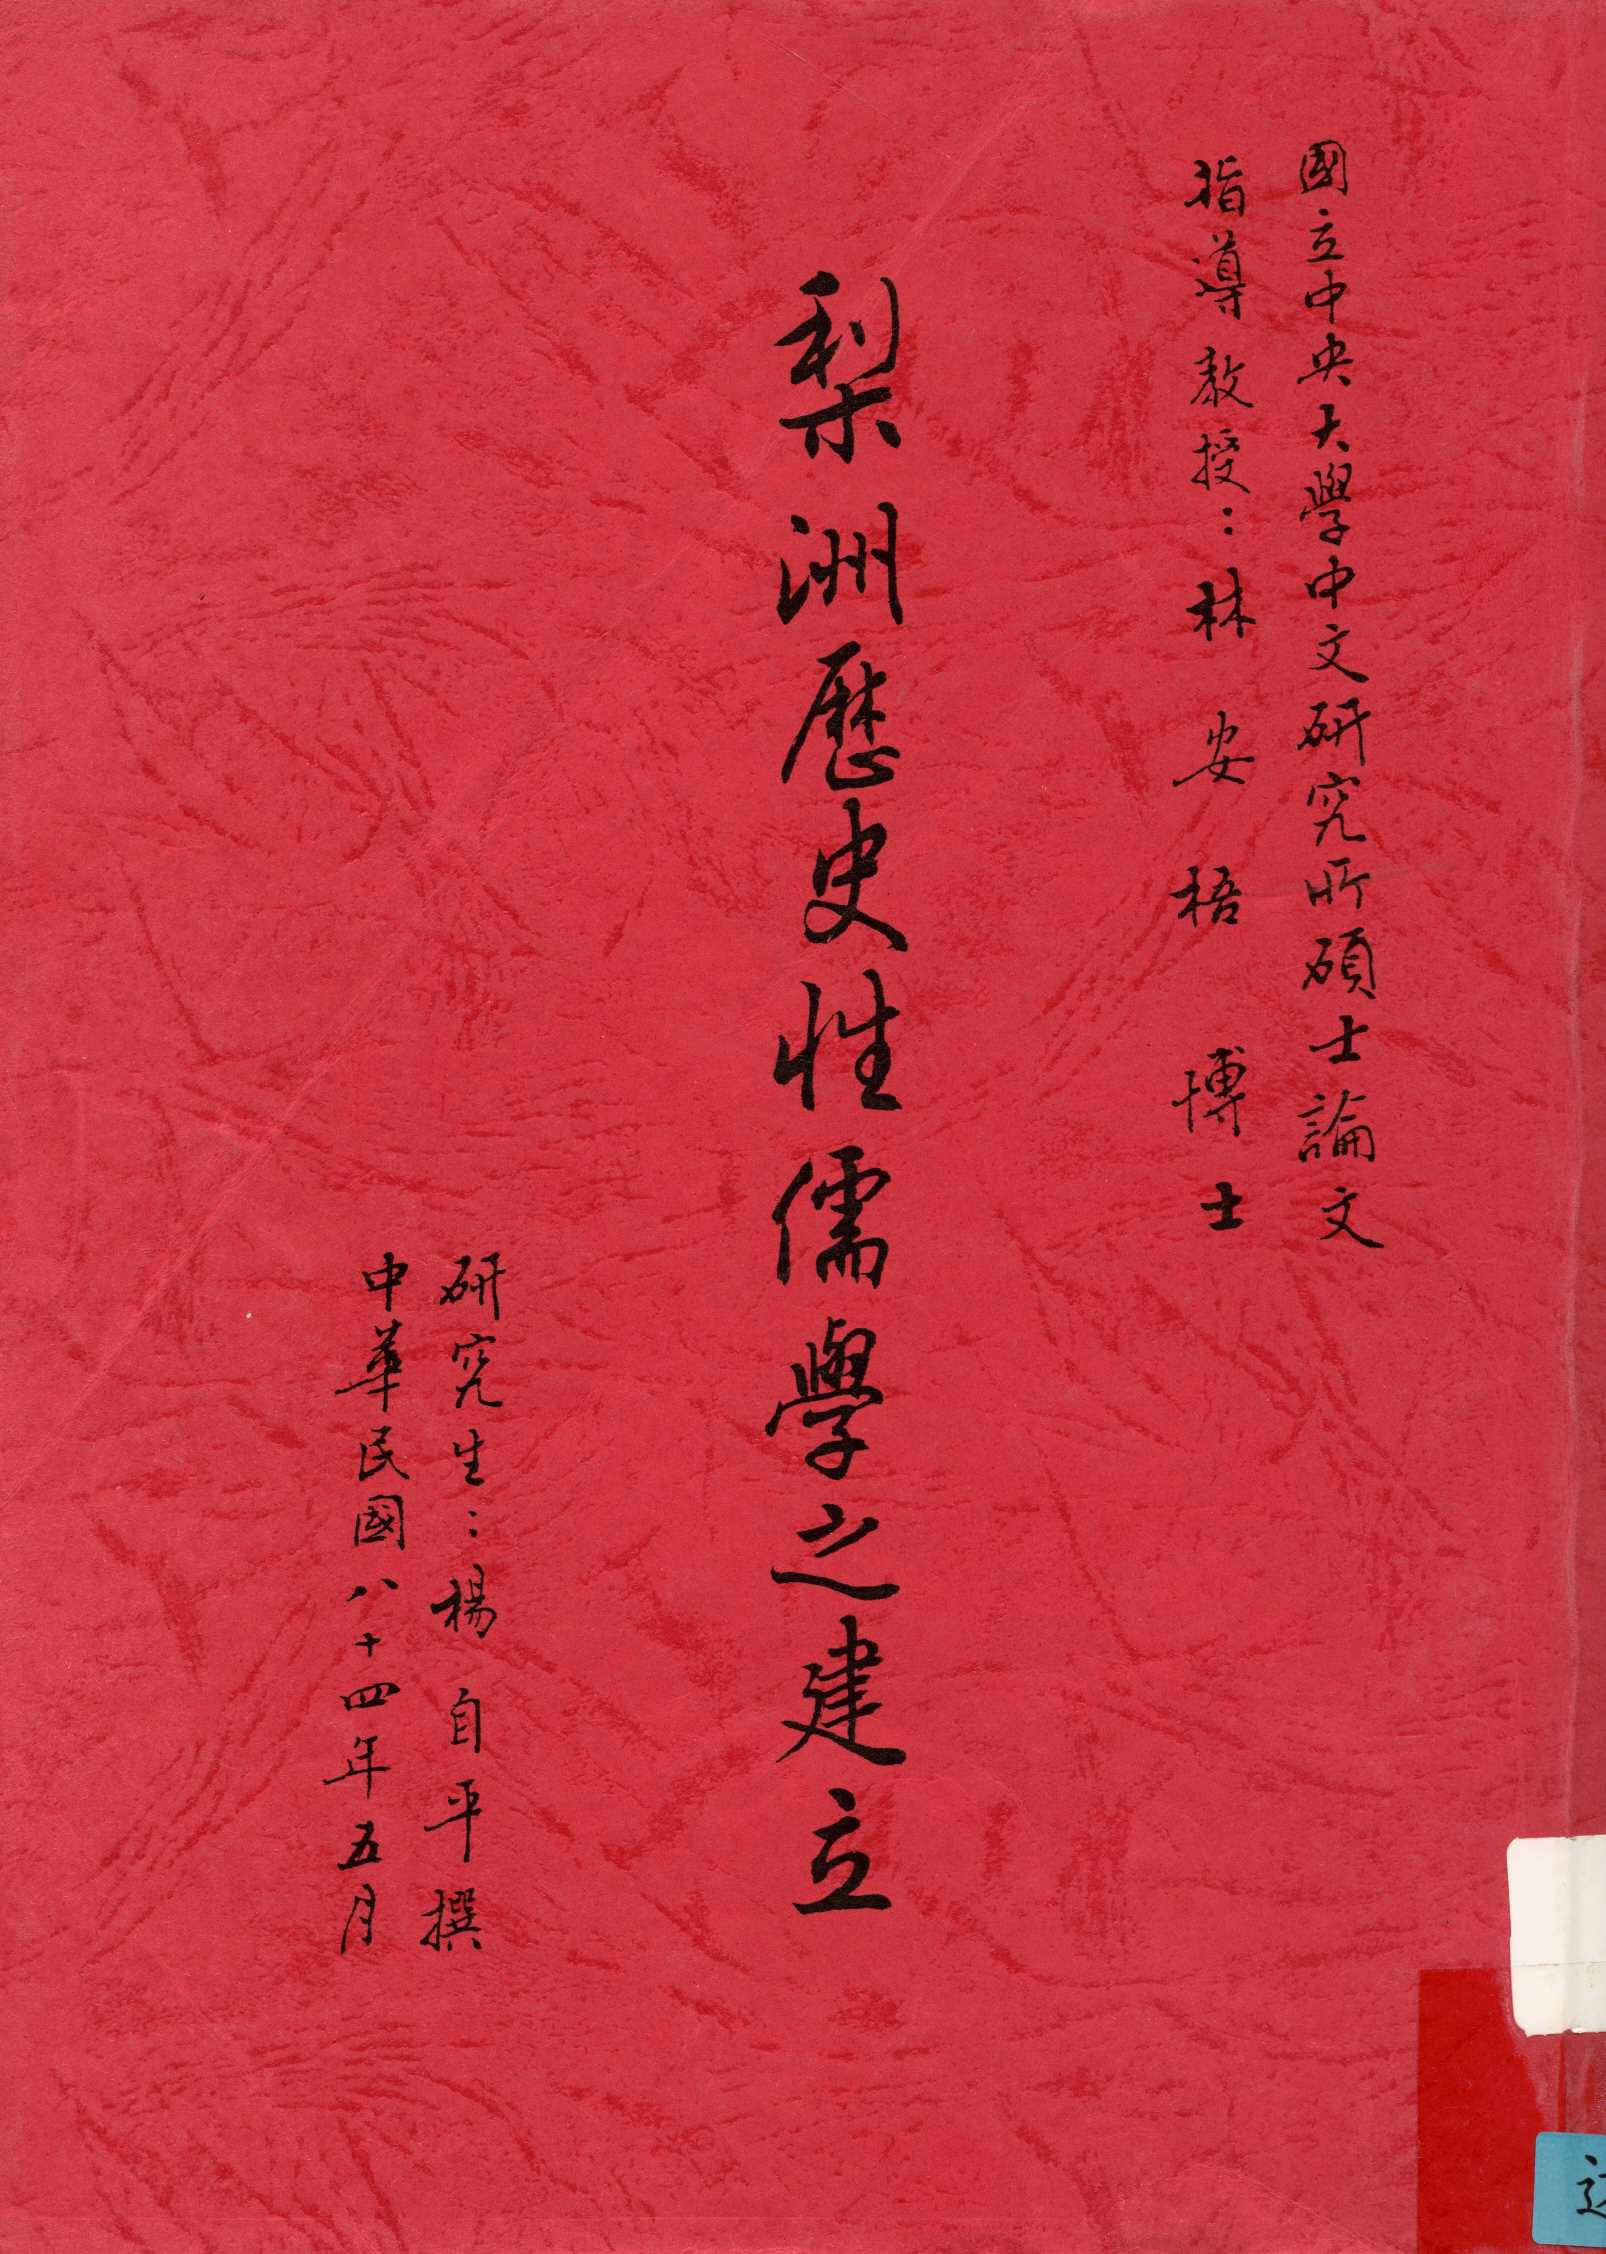 國立中央大學中文研究所碩士論文
指導教授：林安梧 博士
梨洲歷史性儒學之建立
研究生：楊自平撰
中華民國八十四年五月